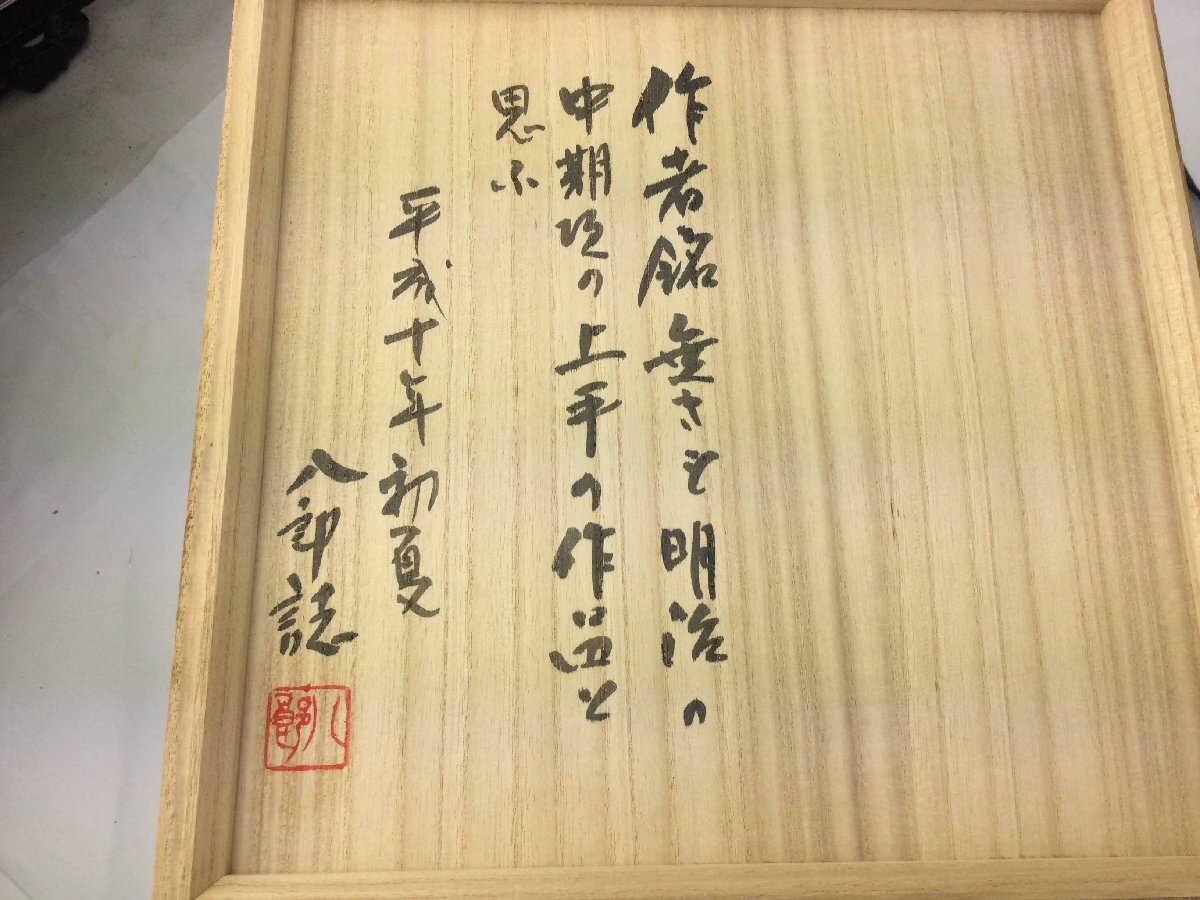 作者銘無きも明治の
中期頃の上手の作品と
思ふ
平成十年初夏
八郎誌
八郎